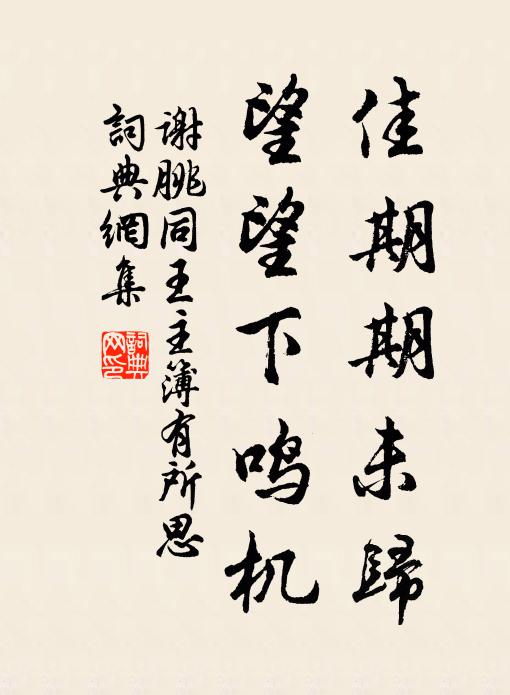 佳期期未歸
望望下鸣机
谢朓同王主簿有所思
詞典網集
詞典网印